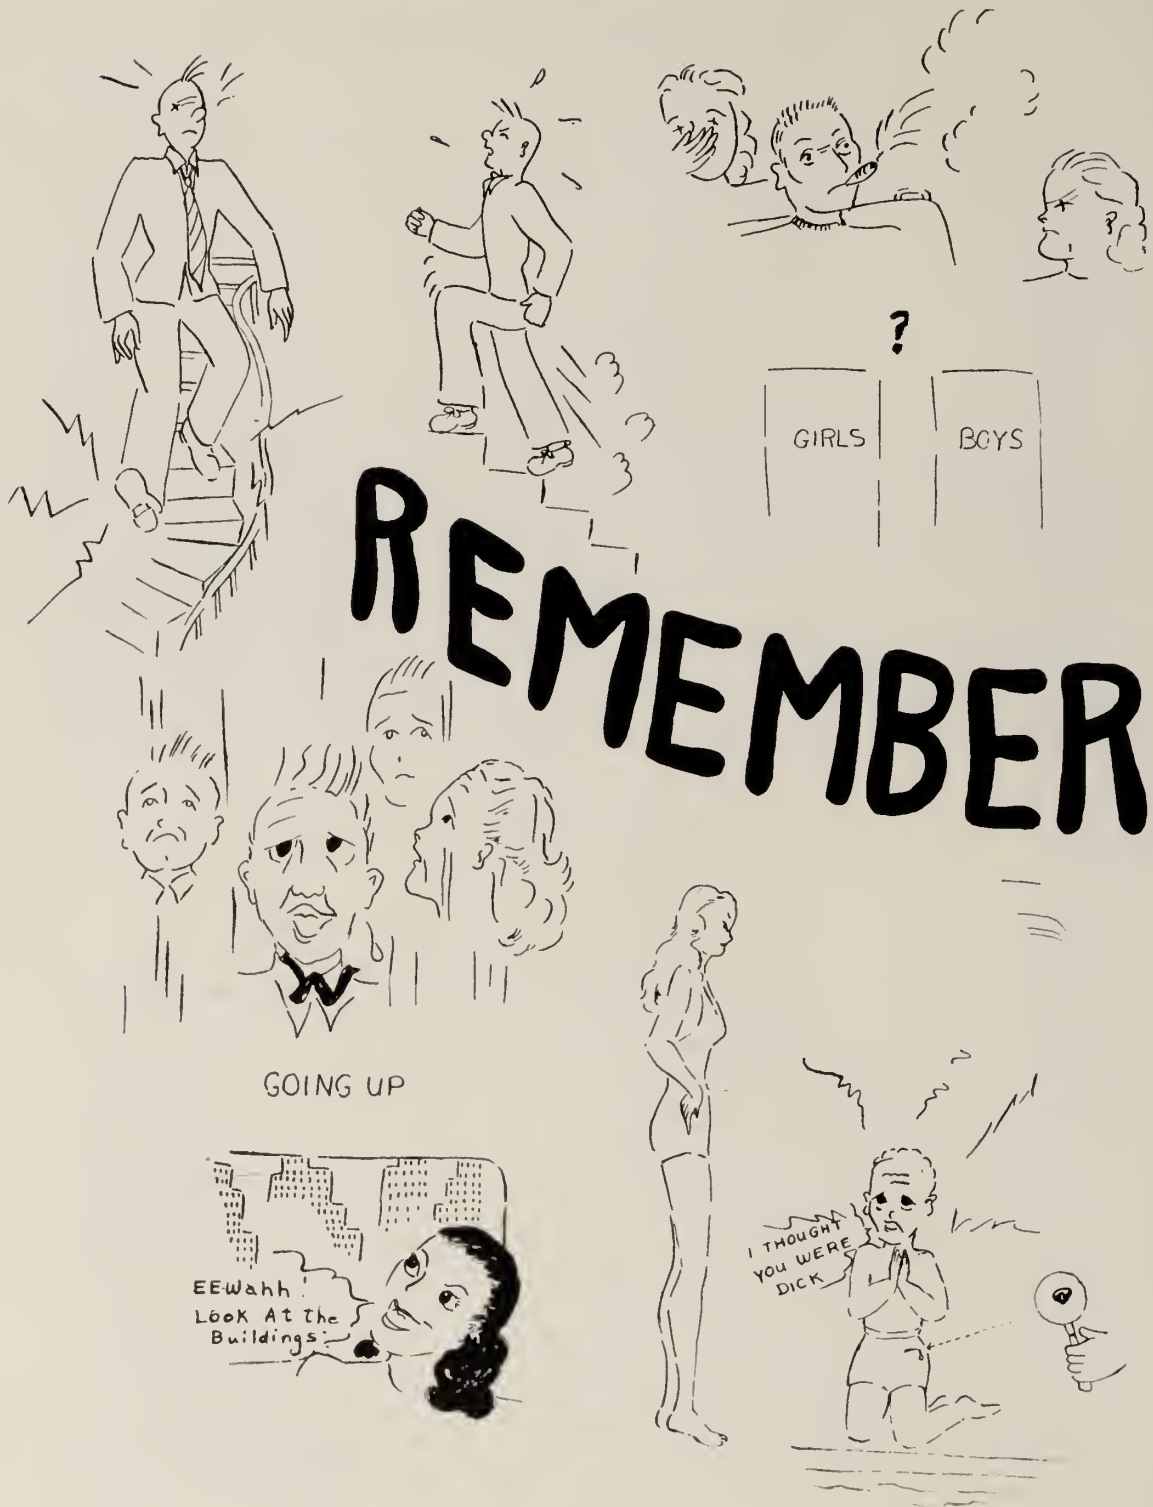 ?
GIRLS BOYS
REMEMBER
GOING UP
EE-Wahh!
Look At the
Buildings.
I THOUGHT
YOU WERE
DICK